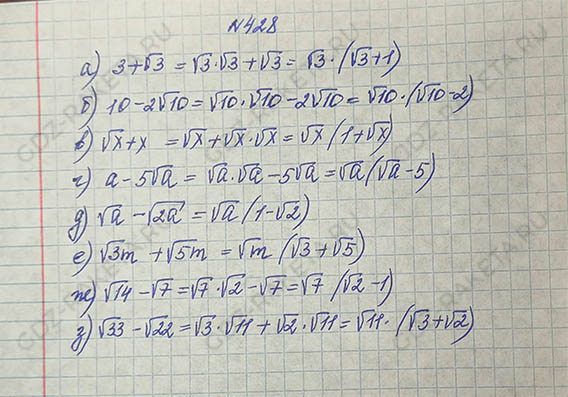 №428
а) 3+√3 = √3·√3+√3 = √3·(√3+1)
б) 10-2√10=√10·√10-2√10=√10·(√10-2)
в) √x+x =√x+√x·√x=√x(1+√x)
г) a-5√a = √a·√a-5√a=√a(√a-5)
д) √a -√2a =√a(1-√2)
е) √3m +√5m =√m(√3+√5)
ж) √14-√7=√7·√2-√7=√7(√2-1)
з) √33-√22=√3·√11+√2·√11=√11·(√3+√2)
GDZ-RAKETA.RU